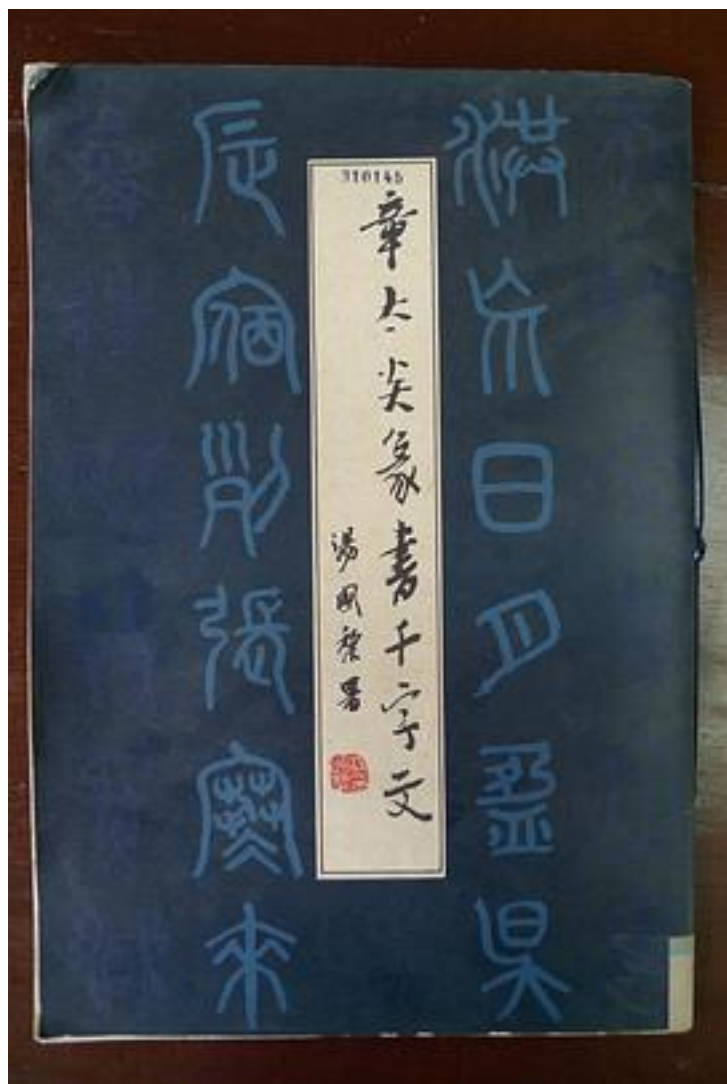 洪荒日月盈昃
310145
章太炎篆書千字文
湯國梨署
辰宿列張寒來